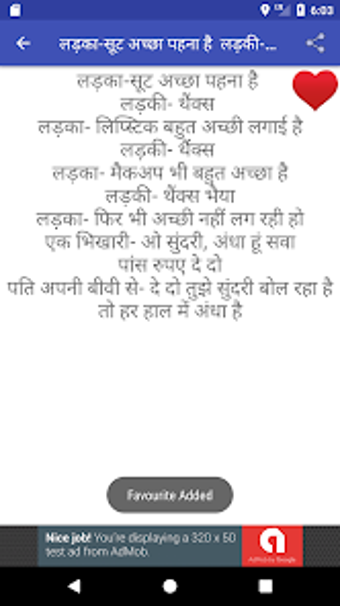 6:03
लड़का-सूट अच्छा पहना है लड़की-...
लड़का-सूट अच्छा पहना है
लड़की- थैंक्स
लड़का- लिप्स्टिक बहुत अच्छी लगाई है
लड़की- थैंक्स
लड़का- मैकअप भी बहुत अच्छा है
लड़की- थैंक्स भैया
लड़का- फिर भी अच्छी नहीं लग रही हो
एक भिखारी- ओ सुंदरी, अंधा हूं सवा
पांस रुपए दे दो
पति अपनी बीवी से- दे दो तुझे सुंदरी बोल रहा है
तो हर हाल में अंधा है
Favourite Added
Nice job! You're displaying a 320 x 50
test ad from AdMob.
AdMob by Google